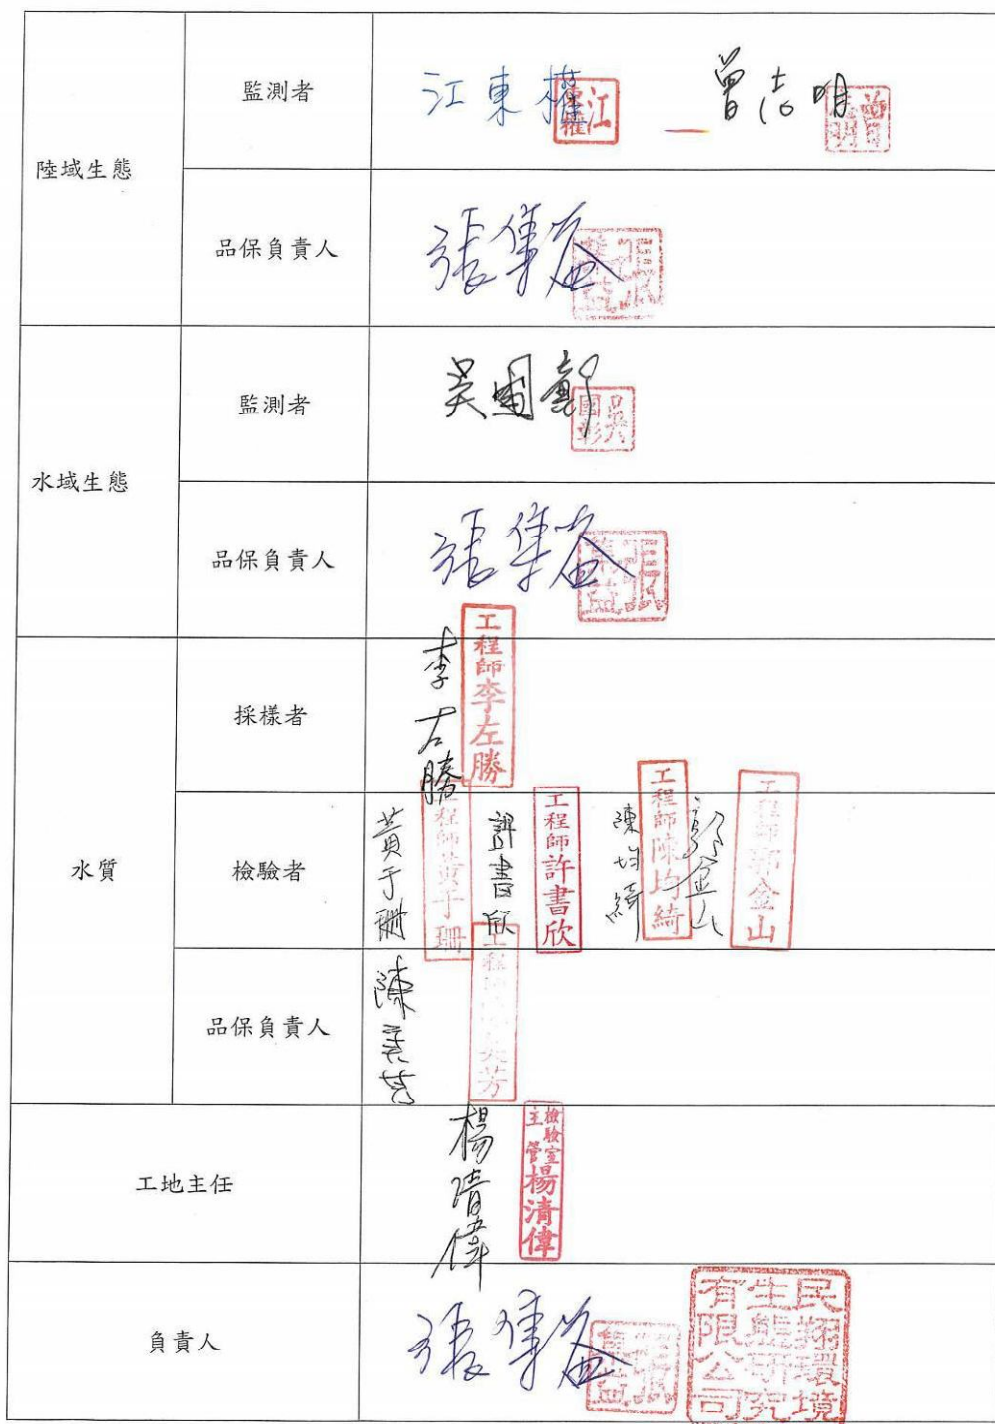 陸域生態
監測者
江東權 江東權 曾志明 曾志明
品保負責人
張集益 張集益
水域生態
監測者
吳國彰 吳國彰
品保負責人
張集益 張集益
水質
採樣者
李左勝 工程師李左勝
檢驗者
黃于珊 工程師黃于珊 許書欣 工程師許書欣 陳均綺 工程師陳均綺 郭金山 工程師郭金山
品保負責人
陳 芳 工程師 芳
工地主任
楊清偉 檢驗室主管楊清偉
負責人
張集益 張集益 民翔環境生態研究有限公司